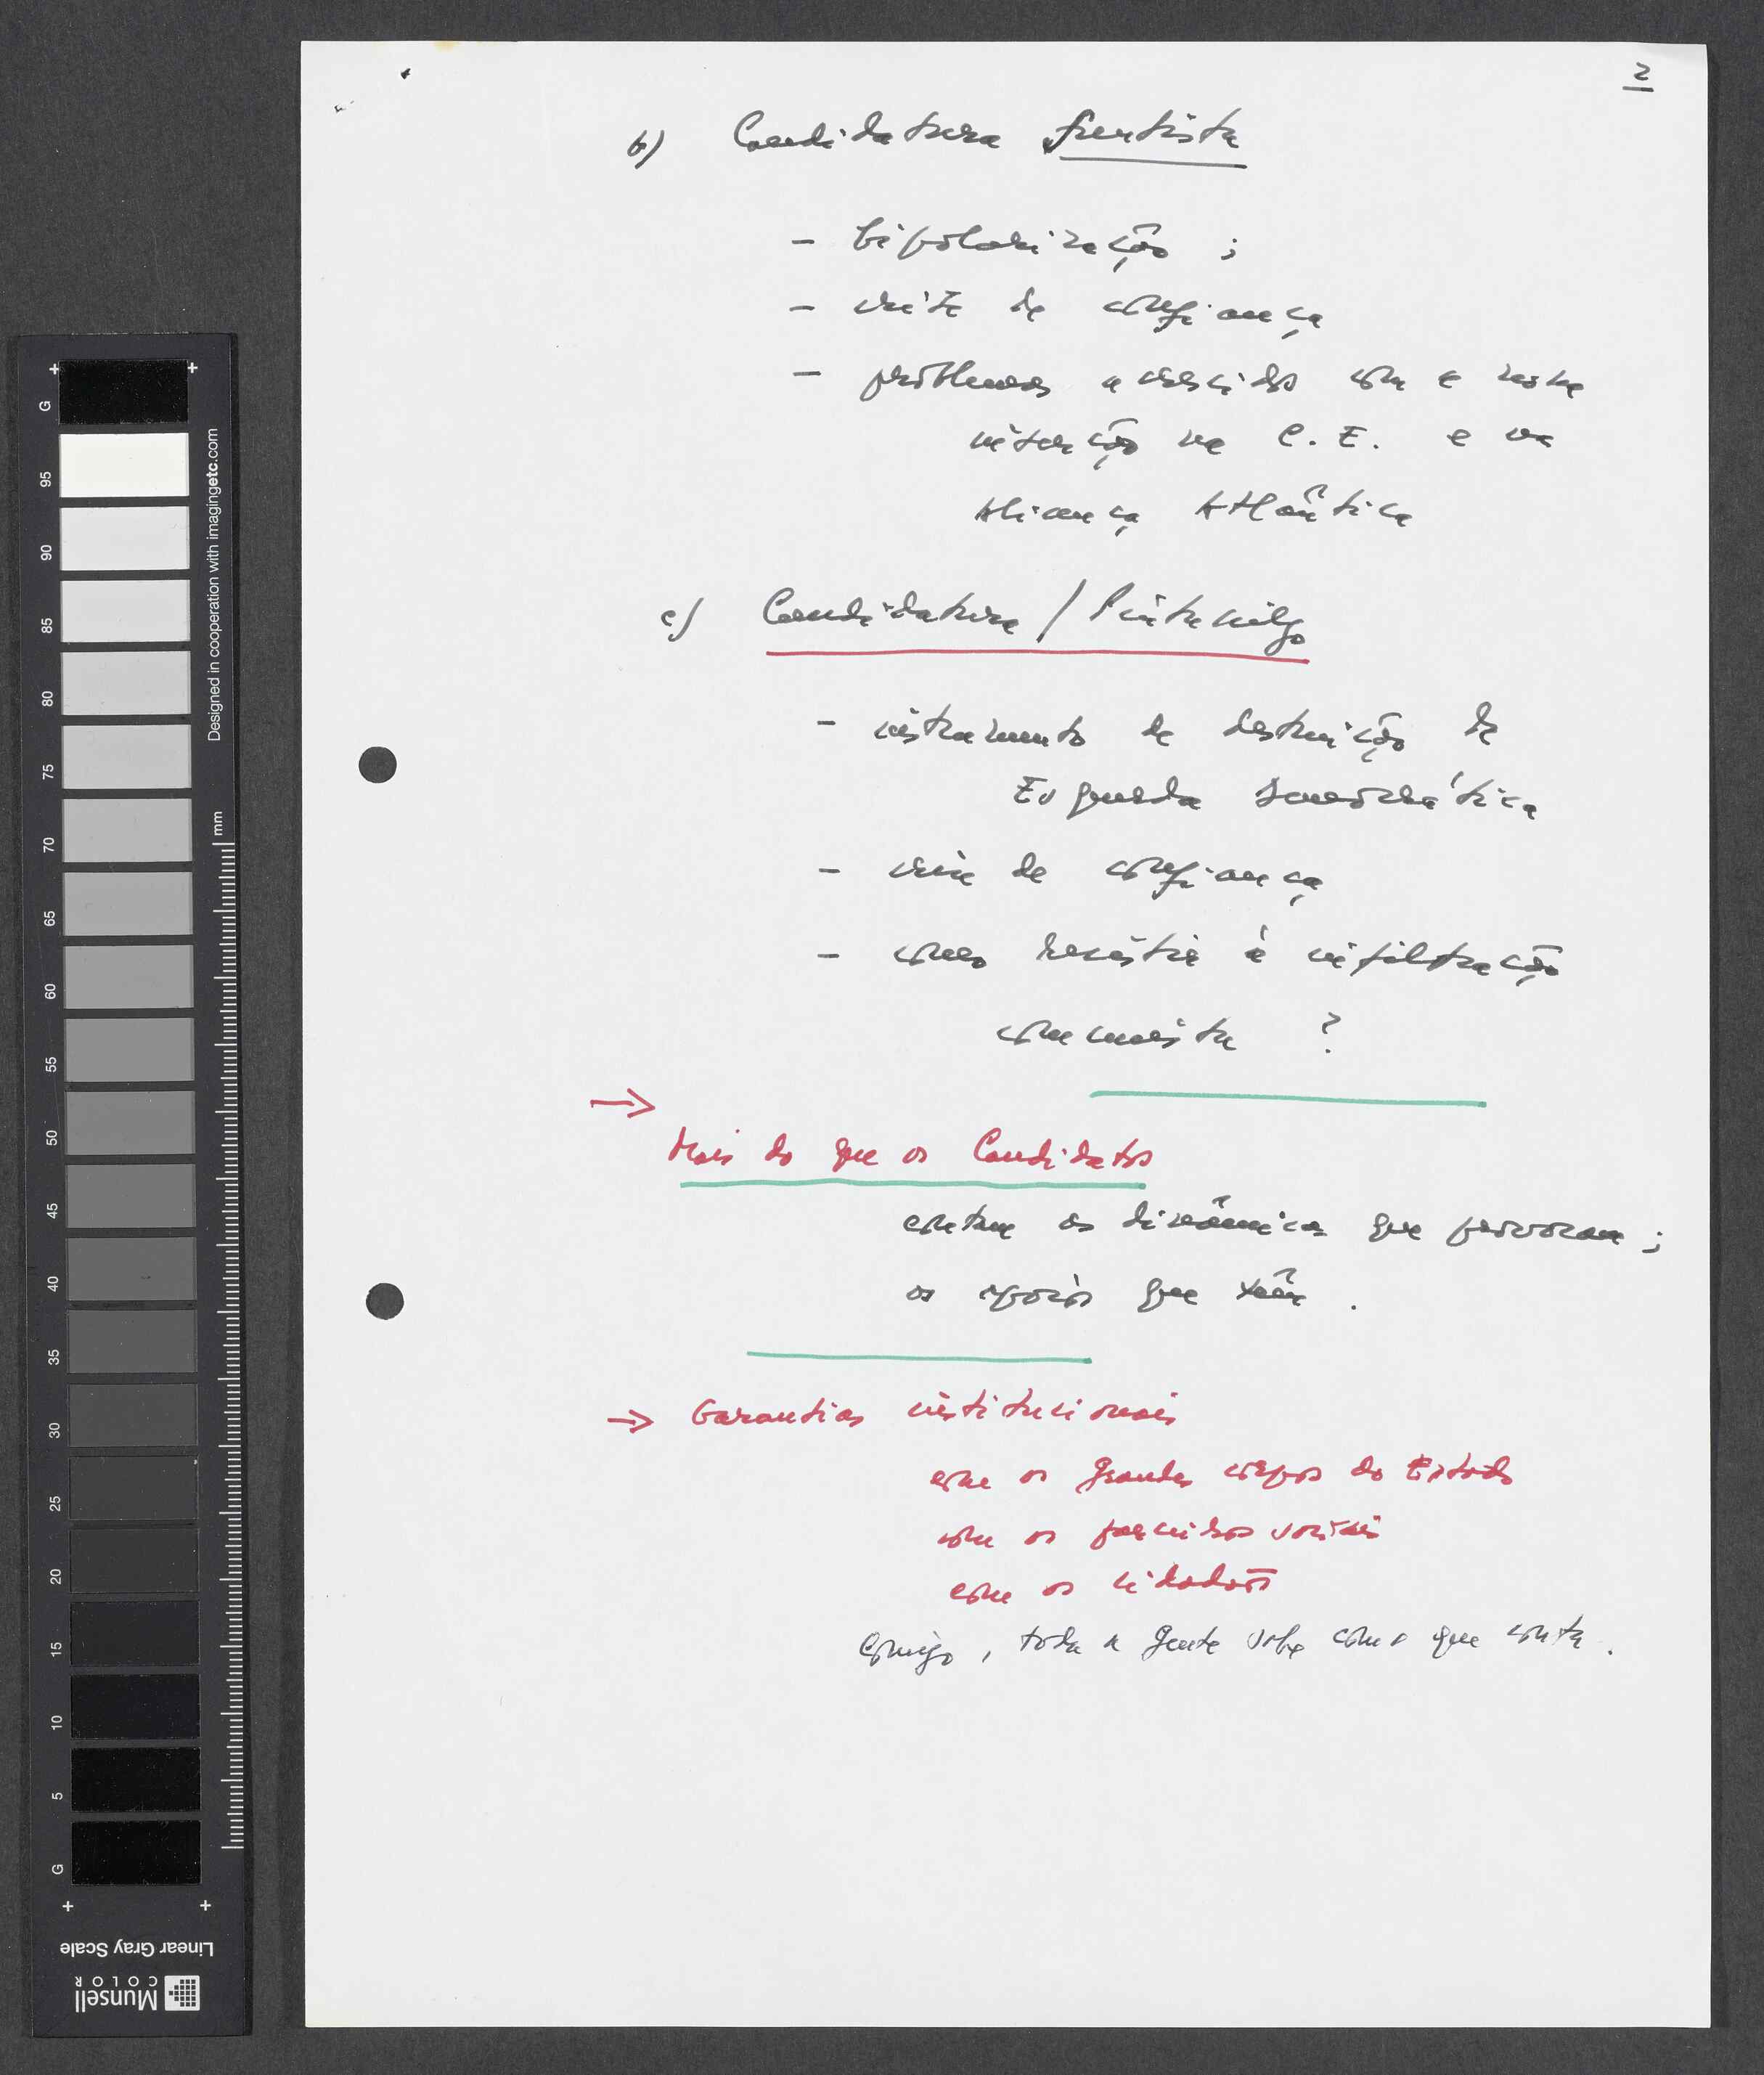 2
b) Candidatura frentista
- bipolarização ;
- crise de confiança
- problemas acrescidos com a nossa
inserção na C.E. e na
Aliança Atlântica
c) Candidatura / Pintasilgo
- instrumento de destruição da
Esquerda Democrática
- crise de confiança
- como resistir à infiltração
comunista ?
→
Mais do que os Candidatos
contam as dinâmicas que provocam ;
os apoios que têm .
→ Garantias institucionais
com os grandes corpos do Estado
com os parceiros sociais
com os cidadãos
Comigo, toda a gente sabe com o que conta .
G
95
90
85
80
75
70
65
60
55
50
45
40
35
30
25
20
15
10
5
G
mm
Designed in cooperation with imagingetc.com
Linear Gray Scale
Munsell
COLOR